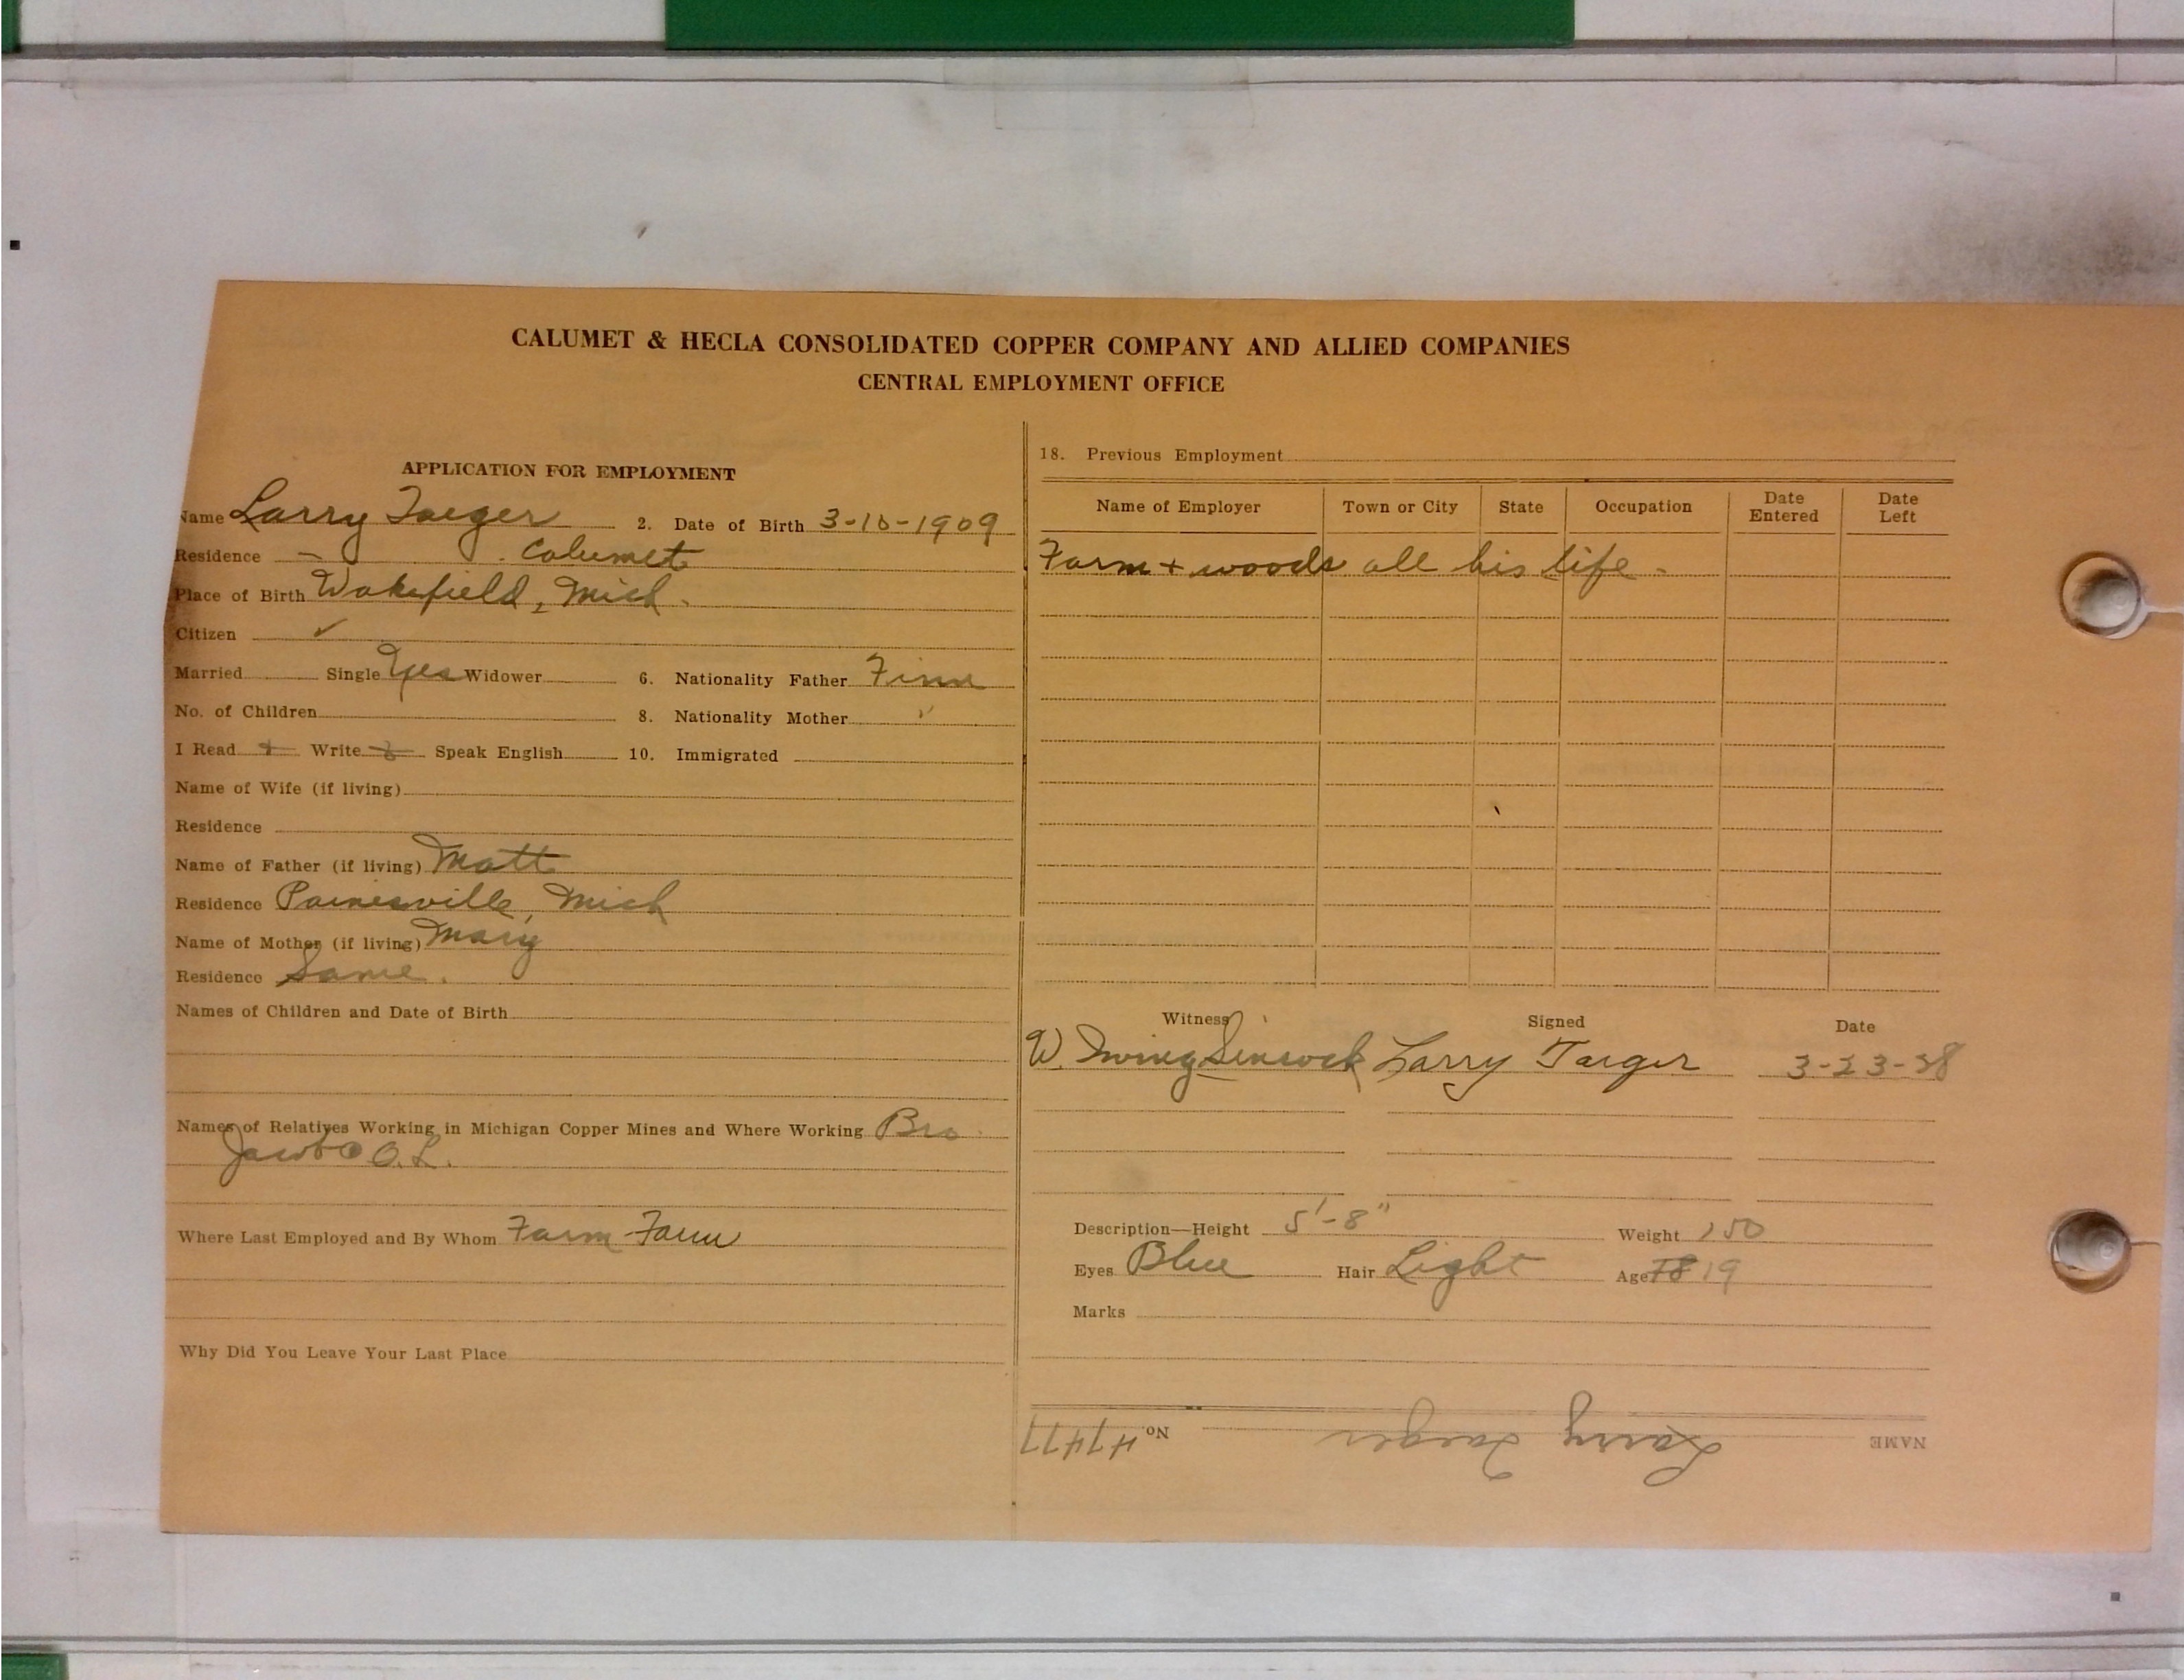 CALUMET & HECLA CONSOLIDATED COPPER COMPANY AND ALLIED COMPANIES
CENTRAL EMPLOYMENT OFFICE
APPLICATION FOR EMPLOYMENT
Name Larry Taeger 2. Date of Birth 3-10-1909
Residence - Calumet
Place of Birth Wakefield, Mich.
Citizen ✓
Married Single Yes Widower 6. Nationality Father Finn
No. of Children 8. Nationality Mother "
I Read + Write + Speak English 10. Immigrated
Name of Wife (if living)
Residence
Name of Father (if living) Matt
Residence Painesville, Mich
Name of Mother (if living) Mary
Residence Same.
Names of Children and Date of Birth
Names of Relatives Working in Michigan Copper Mines and Where Working Bro
O.L.
Where Last Employed and By Whom Farm - Farm
Why Did You Leave Your Last Place
18. Previous Employment
Name of Employer Town or City State Occupation Date Entered Date Left
Farm + woods all his life -
Witness Signed Date
W. Larry Taeger 3-23-38
Description—Height 5'-8" Weight 150
Eyes Blue Hair Light Age 18 19
Marks
NAME Larry Taeger No. 47477